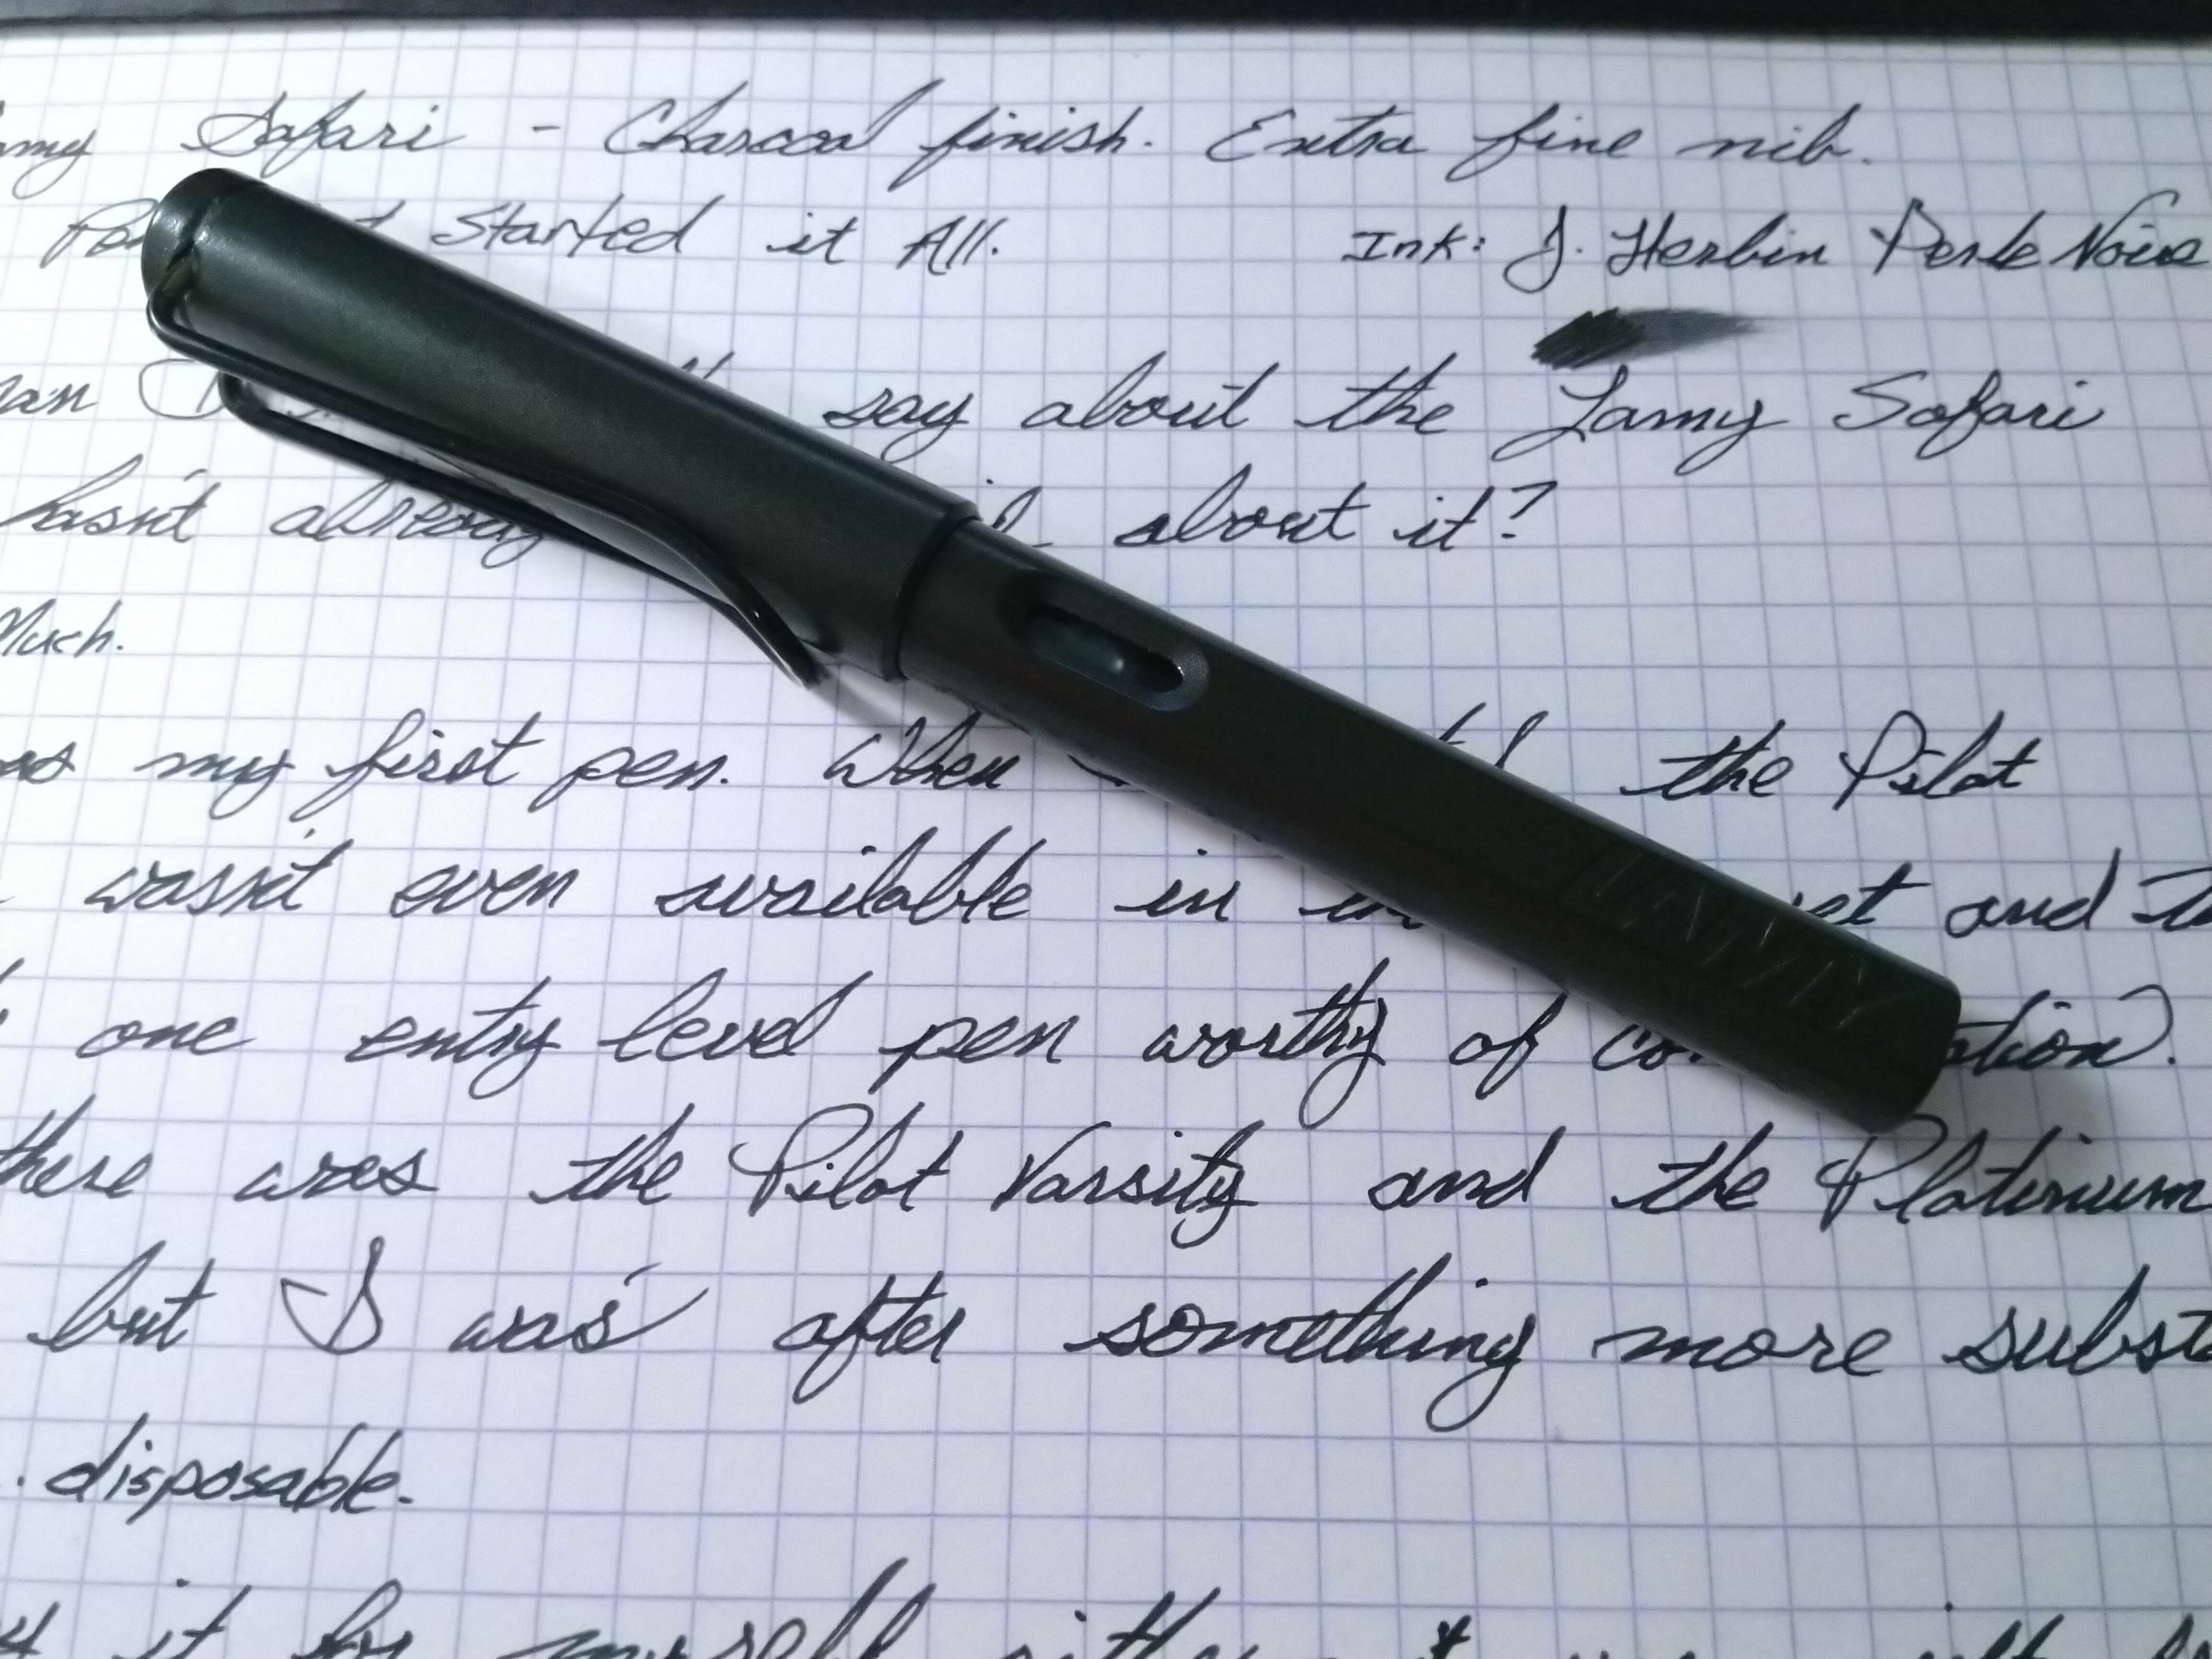 my Safari - Charcoal finish. Extra fine nib.
Started it All. Ink: J. Herbin Perle Noire
say about the Lamy Safari
hasn't already about it?
Much.
my first pen. When the Pilot
wasn't even available in and
one entry level pen worthy of
there was the Pilot Varsity and the Platinum
but I was after something more subst
disposable.
it by myself
LAMY